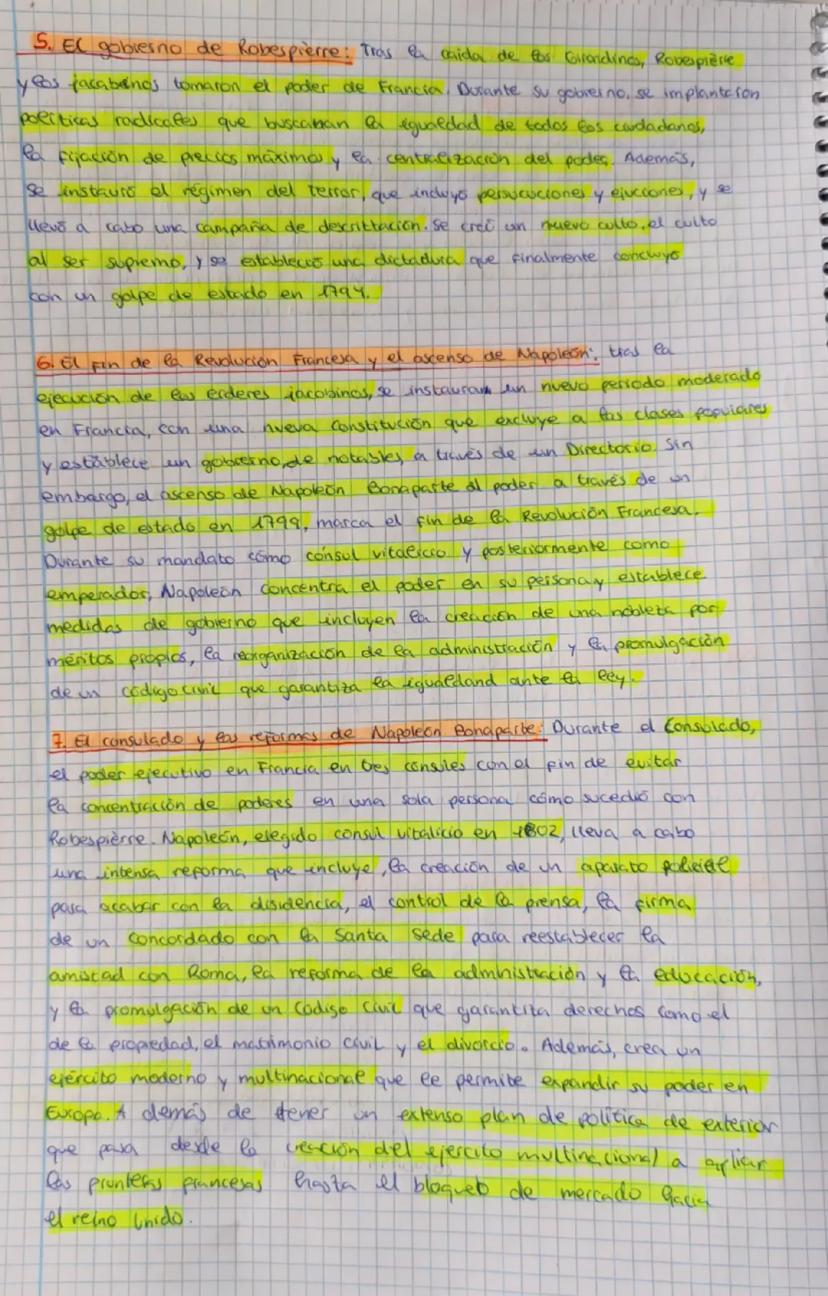 5. El gobierno de Robespièrre: Tras la caida de los Girondinos, Robespièrre
y los jacobinos tomaron el poder de Francia. Durante su gobierno, se implantaron
políticas radicales que buscaban la igualdad de todos los ciudadanos,
la fijación de precios máximos y la centralización del poder. Además,
se instauró el régimen del terror, que incluyó persucuciones y ejucciones, y se
llevó a cabo una campaña de descrittación. Se creó un nuevo culto, el culto
al ser supremo, y se estableció una dictadura que finalmente concluyó
con un golpe de estado en 1794.
6. El fin de la Revolución Francesa y el ascenso de Napoleón: tras la
ejecución de los líderes jacobinos, se instauran un nuevo periodo moderado
en Francia, con una nueva constitución que excluye a las clases populares
y establece un gobierno, de notables, a través de un Directorio. Sin
embargo, el ascenso de Napoleón Bonaparte al poder a través de un
golpe de estado en 1799, marca el fin de la Revolución Francesa.
Durante su mandato cómo cónsul vitalicio y posteriormente como
emperados, Napoleón concentra el poder en su persona y establece
medidas de gobierno que incluyen la creación de una nobleza por
méritos propios, la reorganización de la administración y la promulgación
de un código civil que garantiza la igualdand ante la ley.
7. El consulado y las reformas de Napoleón Bonaparte: Durante el Consulado,
el poder ejecutivo en Francia en tres cónsules con el fin de evitar
la concentración de poderes en una sola persona cómo sucedió con
Robespièrre. Napoleón, elegido consul vitalicio en 1802, lleva a cabo
una intensa reforma que incluye, la creación de un aparato policial
para acabar con la disidencia, el control de la prensa, la firma
de un concordado con la Santa Sede para reestablecer la
amistad con Roma, la reforma de la administración y la educación,
y la promulgación de un Código Civil que garantita derechos como el
de la propiedad, el matrimonio civil y el divorcio. Además, crea un
ejército moderno y multinacional que le permite expandir su poder en
Europa. A demás de tener un extenso plan de política de exterior
que pasa desde la creación del ejercito multinacional a apliar
las fronteras francesas hasta el bloqueo de mercado hacia
el reino Unido.